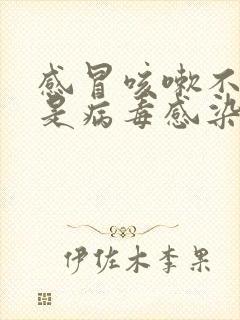 感冒咳嗽不
是病毒感染
伊佐木李果